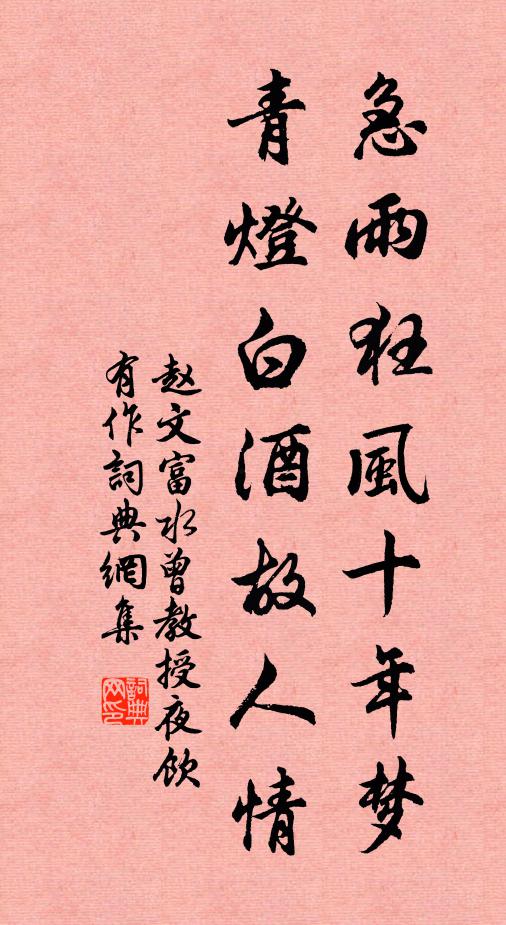 急雨狂風十年梦
青燈白酒故人情
赵文富水曾教授夜飲
有作詞典網集
詞典网印